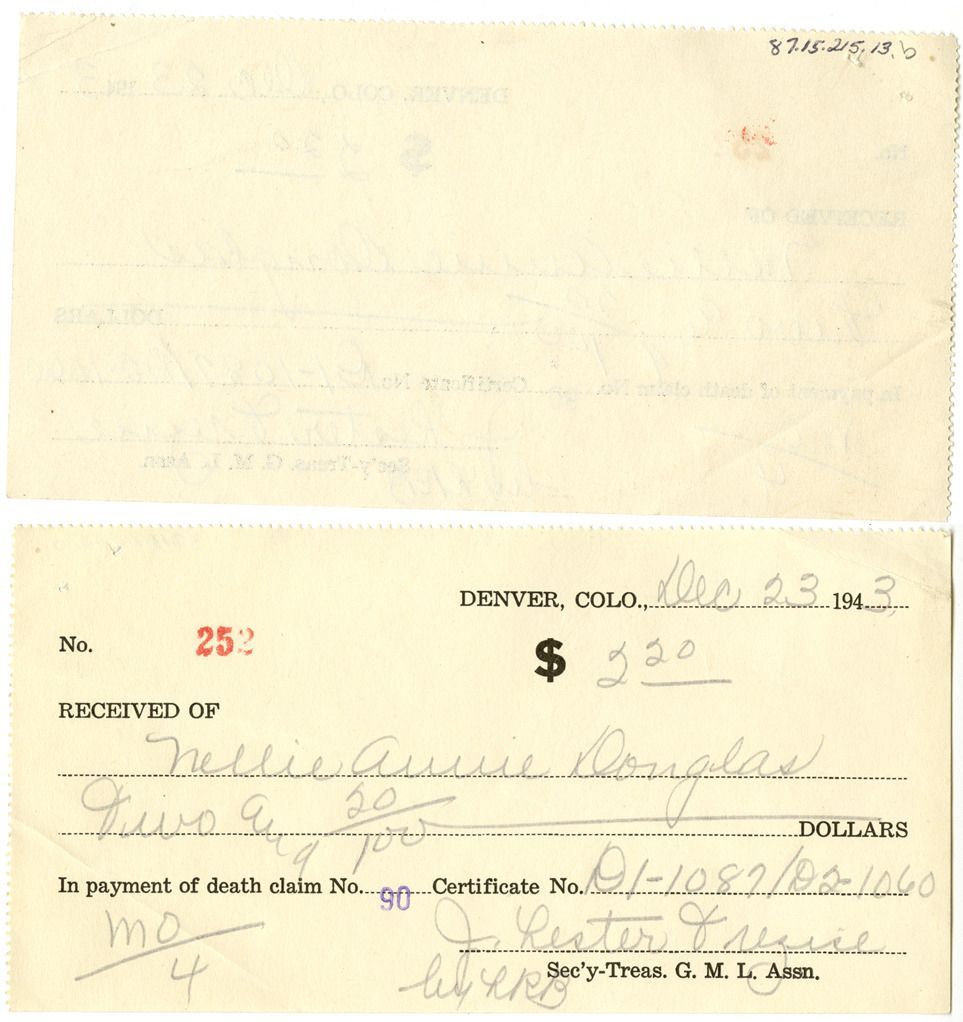 87.15.215.13.b
DENVER, COLO., Dec 23 1943
No. 252 $ 2 20
RECEIVED OF
Nellie Annie Douglas
Two and 20/100 DOLLARS
In payment of death claim No. 90 Certificate No. D1-1087/D2-1060
MO/4 J. Lester Trezise
Sec'y-Treas. G. M. L. Assn.
by